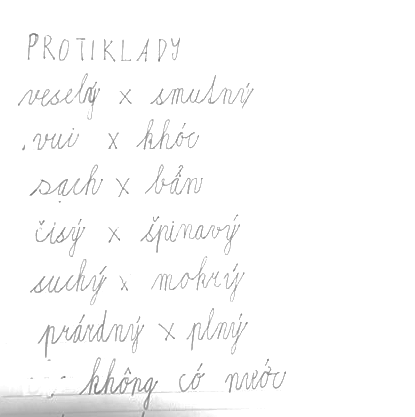 PROTIKLADY
veselý x smutný
.vui x khóc
sạch x bẩn
čisý x špinavý
suchý x mokrý
prárdný x plný
không có nước